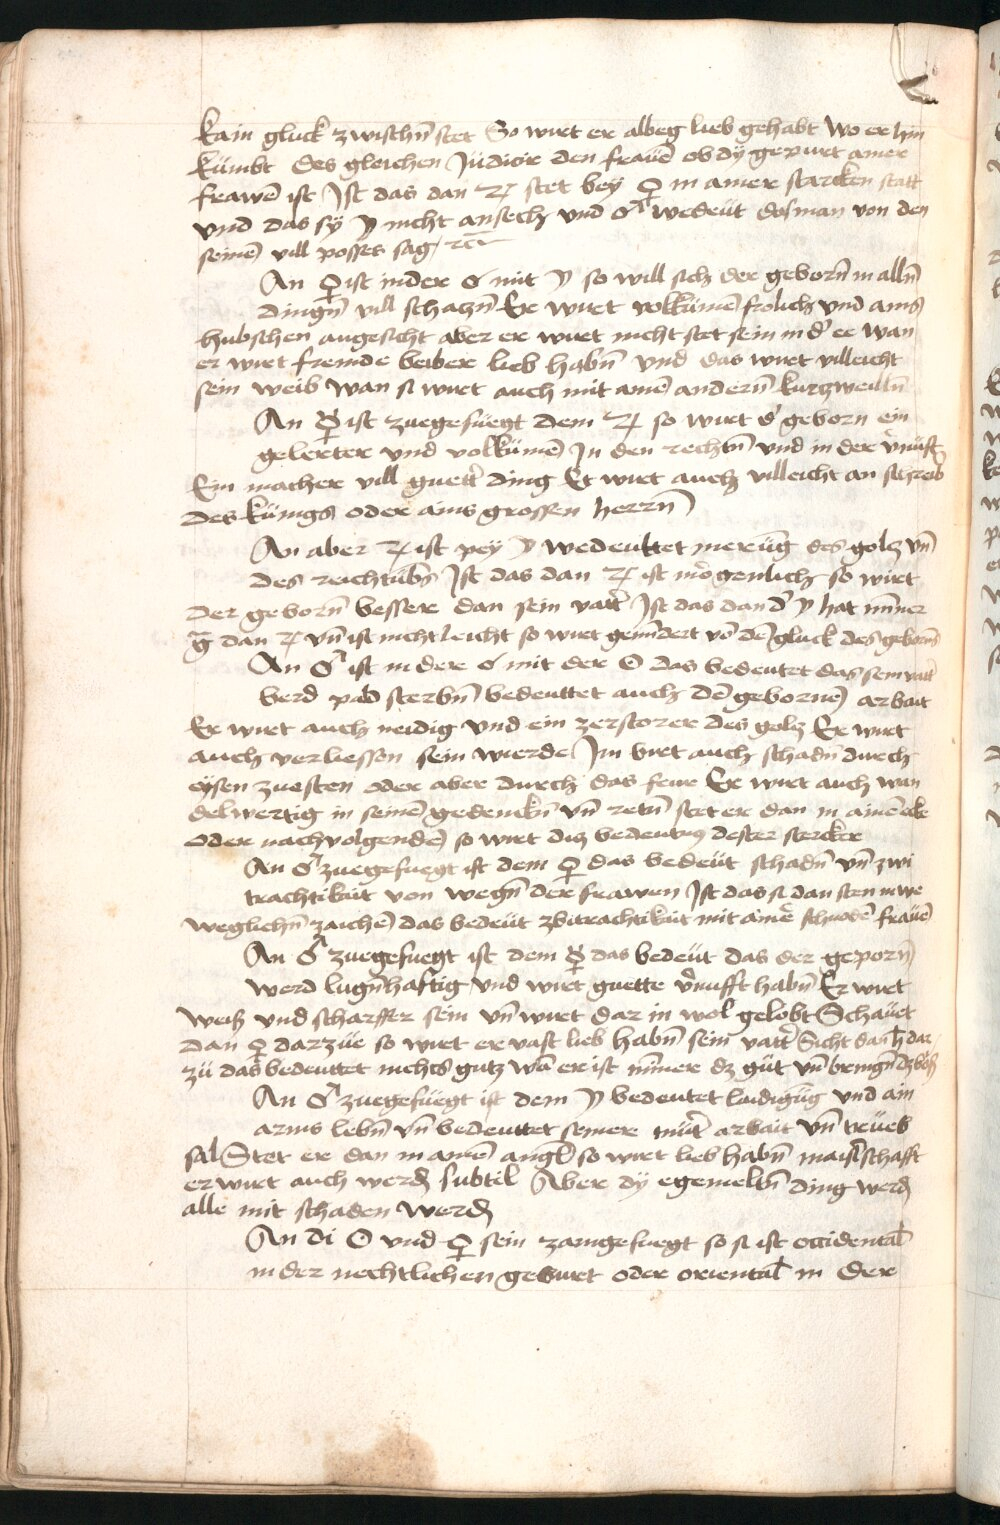 kain gluck zwischn̄ stet So wirt er albeg lieb gehabt wo er hin
kumbt des gleichen Judicir den frauē ob dy gepurt ainer
frawē ist Ist das dan ♃ stet bey ♀ in ainer starcken statt
vnd das sy ☽ nicht ansech vnd ♂ wedeüt das man von den
seinē vill posses sag ꝛc
An ♀ ist in der ☌ mit ☽ so will sich der geborn̄ in alln̄
dingn̄ vill schaczn̄ Er wirt volkumē frolich vnd ains
hubschen angesicht aber er wirt nicht stet sein in d' ee wan
er wirt fremde beiber lieb habn̄ vnd das wirt villeicht
sein weib wan si wirt auch mit ainē andern̄ kurczweilln̄
An ☿ ist zuegefuegt dem ♃ so wirt d' geborn ein
gelerter vnd volkumē In den rechtn̄ vnd in der v'nufft
Ein macher vill guett' ding Er wirt auch villeicht an schreib
des kunigs oder ains grossen herrn̄
An aber ♃ ist pey ☽ wedeuttet merūg des golcz vn̄
des reichtubs Ist das dan ♃ ist mogenlich so wirt
der geborn̄ besser dan sein vatt' Ist das dan d' ☽ hat minner
g̃ dan ♃ vn̄ ist nicht leicht so wirt gemindert vō dē gluck des geborns
An ♂ ist in dere ☌ mit der ☉ das bedeutet das sein vatt'
werd pald sterbn̄ bedeuttet auch dē gebornē arbait
Er wirt auch neidig vnd ein zerstorer des golcz Er wirt
auch verliessen sein wierde Im birt auch schadn̄ durch
eysen zuesten oder aber durch das feur Er wirt auch wan
delwertig in seinē gedenckn̄ vn̄ retn̄ stet er dan in ainē eke
oder nachvolgendē so wirt dis bedeutnus dester stercker
An ♂ zuegefuegt ist dem ♀ das bedeüt schadn̄ vn̄ zwi
trachtikait von wegn̄ der frawen Ist das si dan sten in we
weglichn̄ zaichē das bedeüt zbitrachtikait mit ainē' schnodē frauē
An ♂ zuegefuegt ist dem ☿ das bedeüt das der geporn̄
werd lugn̄hafftig vnd wirt guette v'nufft habn̄ Er wirt
weiß vnd scharffer sein vn̄ wirt dar in wol gelobt Schauet
dan ♀ darzue so wirt er vast lieb habn̄ sein vatt' Sicht dan ♄ dar
zu das bedeuttet nichts gutz wā er ist minner dz güt vn̄ bringn̄ dz böß
An ♂ zuegefüegt ist dem ☽ bedeutet laidigūg vnd ain
arms lebn̄ vn̄ bedeuttet seiner mut' arbait vn̄ trüeb
sal Stet er dan in ainē angl so wirt lieb habn̄ maist'schafft
er wirt auch werdn̄ subtil Aber dy egemeltn̄ ding werdn̄
alle mit schaden werdn̄
An di ☉ vnd ♀ sein zamgefuegt so si ist occidental
in der nechtlichen geburt oder oriental in der